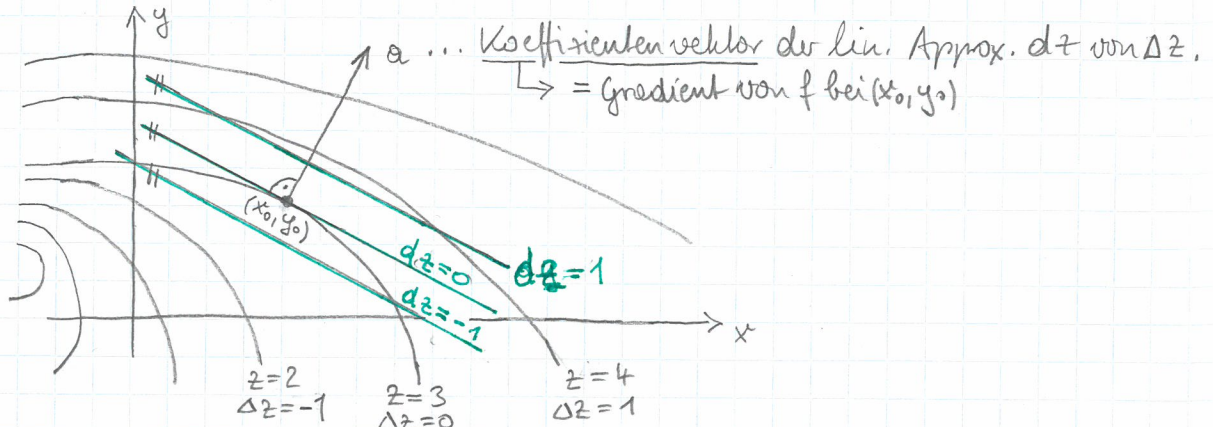 y
a ... Koeffizientenvektor der lin. Approx. dz von Δz.
= Gradient von f bei (x₀, y₀)
(x₀, y₀)
dz=0
dz=1
dz=-1
x
z=2
Δz=-1
z=3
Δz=0
z=4
Δz=1